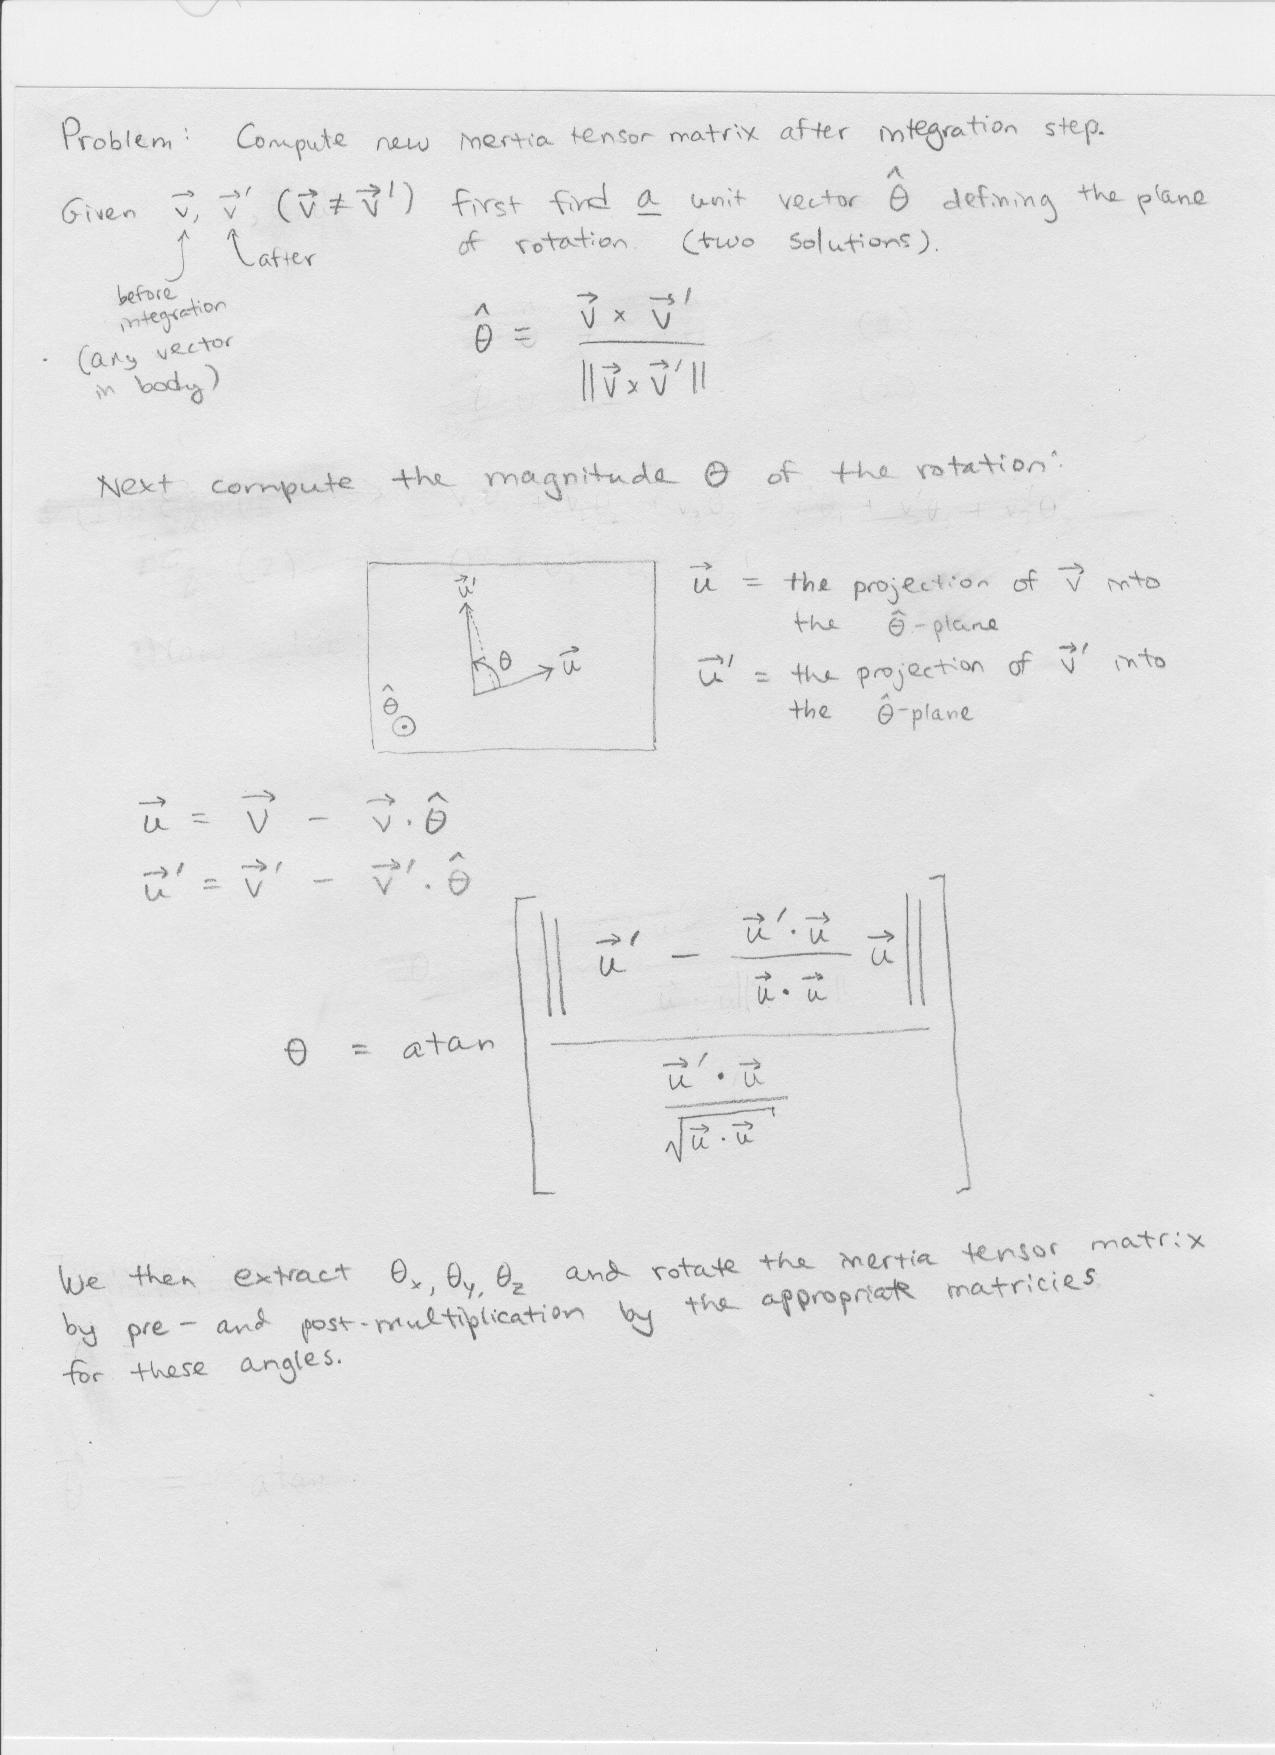 Problem: Compute new inertia tensor matrix after integration step.
Given v⃗, v⃗′ (v⃗ ≠ v⃗′) first find a unit vector θ̂ defining the plane
of rotation (two solutions).
after
before
integration
(any vector
in body)
θ̂ = (v⃗ × v⃗′) / ||v⃗ × v⃗′||
Next compute the magnitude θ of the rotation:
u⃗′
θ
u⃗
θ̂
u⃗ = the projection of v⃗ into
the θ̂-plane
u⃗′ = the projection of v⃗′ into
the θ̂-plane
u⃗ = v⃗ - v⃗·θ̂
u⃗′ = v⃗′ - v⃗′·θ̂
θ = atan [ || u⃗′ - (u⃗′·u⃗)/(u⃗·u⃗) u⃗ || / ( (u⃗′·u⃗)/√(u⃗·u⃗) ) ]
We then extract θx, θy, θz and rotate the inertia tensor matrix
by pre- and post-multiplication by the appropriate matricies
for these angles.